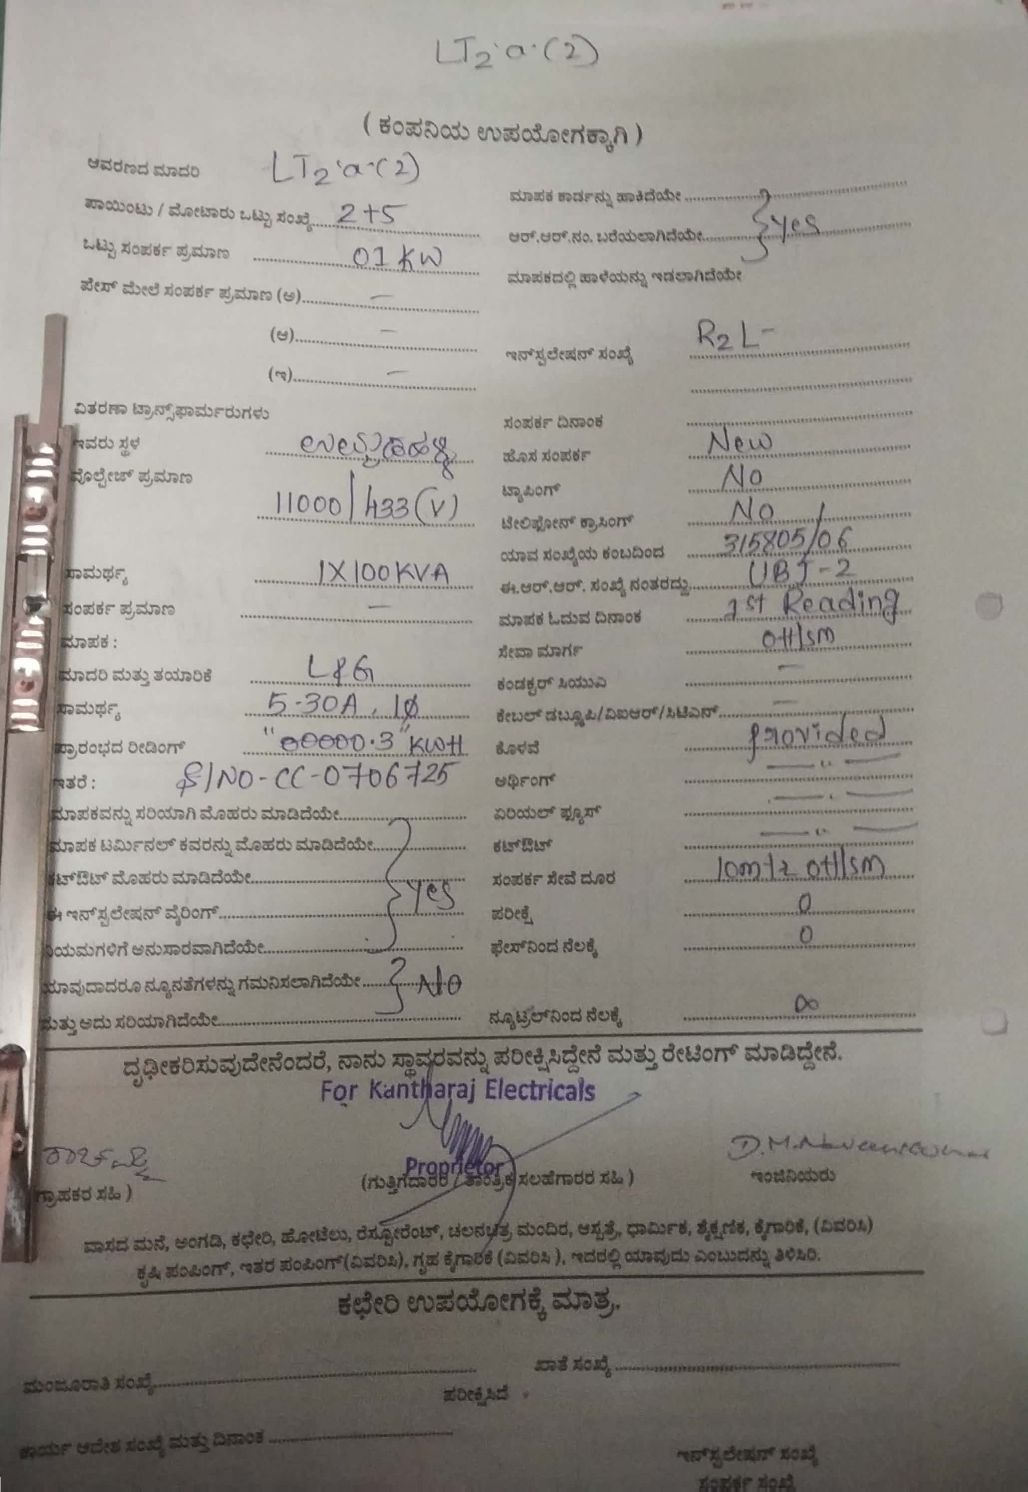 LT2·a·(2)
( ಕಂಪನಿಯ ಉಪಯೋಗಕ್ಕಾಗಿ )
ಆವರಣದ ಮಾದರಿ LT2·a·(2)
ಮಾಪಕ ಕಾರ್ಡನ್ನು ಹಾಕಿದೆಯೇ
ಪಾಯಿಂಟು / ಮೋಟಾರು ಒಟ್ಟು ಸಂಖ್ಯೆ 2+5
ಆರ್.ಆರ್.ನಂ. ಬರೆಯಲಾಗಿದೆಯೇ yes
ಒಟ್ಟು ಸಂಪರ್ಕ ಪ್ರಮಾಣ 01 KW
ಮಾಪಕದಲ್ಲಿ ಹಾಳೆಯನ್ನು ಇಡಲಾಗಿದೆಯೇ
ಪೇಸ್ ಮೇಲೆ ಸಂಪರ್ಕ ಪ್ರಮಾಣ (ಅ) —
(ಆ) —
ಇನ್‌ಸ್ಟಲೇಷನ್ ಸಂಖ್ಯೆ R2 L-
(ಇ) —
ವಿತರಣಾ ಟ್ರಾನ್ಸ್‌ಫಾರ್ಮರುಗಳು
ಸಂಪರ್ಕ ದಿನಾಂಕ
ಇವರು ಸ್ಥಳ
ಹೊಸ ಸಂಪರ್ಕ New
ವೊಲ್ಟೇಜ್ ಪ್ರಮಾಣ 11000/433(V)
ಟ್ಯಾಪಿಂಗ್ No
ಟೇಲಿಫೋನ್ ಕ್ರಾಸಿಂಗ್ No
ಯಾವ ಸಂಖ್ಯೆಯ ಕಂಬದಿಂದ 315805/06
ಸಾಮರ್ಥ್ಯ 1X100KVA
ಈ.ಆರ್.ಆರ್. ಸಂಖ್ಯೆ ನಂತರದ್ದು UBJ-2
ಸಂಪರ್ಕ ಪ್ರಮಾಣ —
ಮಾಪಕ ಓದುವ ದಿನಾಂಕ 1st Reading
ಮಾಪಕ :
ಸೇವಾ ಮಾರ್ಗ OH/SM
ಮಾದರಿ ಮತ್ತು ತಯಾರಿಕೆ L&G
ಕಂಡಕ್ಟರ್ ಸಿಯುಎ —
ಸಾಮರ್ಥ್ಯ 5-30A, 1ф
ಕೇಬಲ್ ಡಬ್ಲ್ಯೂಪಿ/ವಿಐಆರ್/ಸಿಟಿಎಸ್ —
ಪ್ರಾರಂಭದ ರೀಡಿಂಗ್ "00000.3" KWH
ಕೊಳವೆ Provided
ಇತರೆ : S/NO-CC-0706725
ಅರ್ಥಿಂಗ್ — " —
ಮಾಪಕವನ್ನು ಸರಿಯಾಗಿ ಮೊಹರು ಮಾಡಿದೆಯೇ
ಏರಿಯಲ್ ಫ್ಯೂಸ್ — " —
ಮಾಪಕ ಟರ್ಮಿನಲ್ ಕವರನ್ನು ಮೊಹರು ಮಾಡಿದೆಯೇ
ಕಟ್‌ಔಟ್ — " —
ಕಟ್‌ಔಟ್ ಮೊಹರು ಮಾಡಿದೆಯೇ yes
ಸಂಪರ್ಕ ಸೇವೆ ದೂರ OH/SM
ಈ ಇನ್‌ಸ್ಟಲೇಷನ್ ವೈರಿಂಗ್
ಪರೀಕ್ಷೆ 0
ನಿಯಮಗಳಿಗೆ ಅನುಸಾರವಾಗಿದೆಯೇ
ಫೇಸ್‌ನಿಂದ ನೆಲಕ್ಕೆ 0
ಯಾವುದಾದರೂ ನ್ಯೂನತೆಗಳನ್ನು ಗಮನಿಸಲಾಗಿದೆಯೇ No
ಮತ್ತು ಅದು ಸರಿಯಾಗಿದೆಯೇ
ನ್ಯೂಟ್ರಲ್‌ನಿಂದ ನೆಲಕ್ಕೆ ∞
ದೃಢೀಕರಿಸುವುದೇನೆಂದರೆ, ನಾನು ಸ್ಥಾವರವನ್ನು ಪರೀಕ್ಷಿಸಿದ್ದೇನೆ ಮತ್ತು ರೇಟಿಂಗ್ ಮಾಡಿದ್ದೇನೆ.
For Kantharaj Electricals
D.M.Naveenkumar
Proprietor
ಗ್ರಾಹಕರ ಸಹಿ )
(ಗುತ್ತಿಗೆದಾರರ / ತಾಂತ್ರಿಕ ಸಲಹೆಗಾರರ ಸಹಿ )
ಇಂಜಿನಿಯರು
ವಾಸದ ಮನೆ, ಅಂಗಡಿ, ಕಛೇರಿ, ಹೋಟೆಲು, ರೆಸ್ಟೋರೆಂಟ್, ಚಲನಚಿತ್ರ ಮಂದಿರ, ಆಸ್ಪತ್ರೆ, ಧಾರ್ಮಿಕ, ಶೈಕ್ಷಣಿಕ, ಕೈಗಾರಿಕೆ, (ವಿವರಿಸಿ)
ಕೃಷಿ ಪಂಪಿಂಗ್, ಇತರ ಪಂಪಿಂಗ್(ವಿವರಿಸಿ), ಗೃಹ ಕೈಗಾರಿಕೆ (ವಿವರಿಸಿ ), ಇದರಲ್ಲಿ ಯಾವುದು ಎಂಬುದನ್ನು ತಿಳಿಸಿರಿ.
ಕಛೇರಿ ಉಪಯೋಗಕ್ಕೆ ಮಾತ್ರ.
ಮಂಜೂರಾತಿ ಸಂಖ್ಯೆ
ಖಾತೆ ಸಂಖ್ಯೆ
ಪರೀಕ್ಷಿಸಿದೆ
ಕಾರ್ಯ ಆದೇಶ ಸಂಖ್ಯೆ ಮತ್ತು ದಿನಾಂಕ
ಇನ್‌ಸ್ಟಲೇಷನ್ ಸಂಖ್ಯೆ
ಸಂಪರ್ಕ ಸಂಖ್ಯೆ